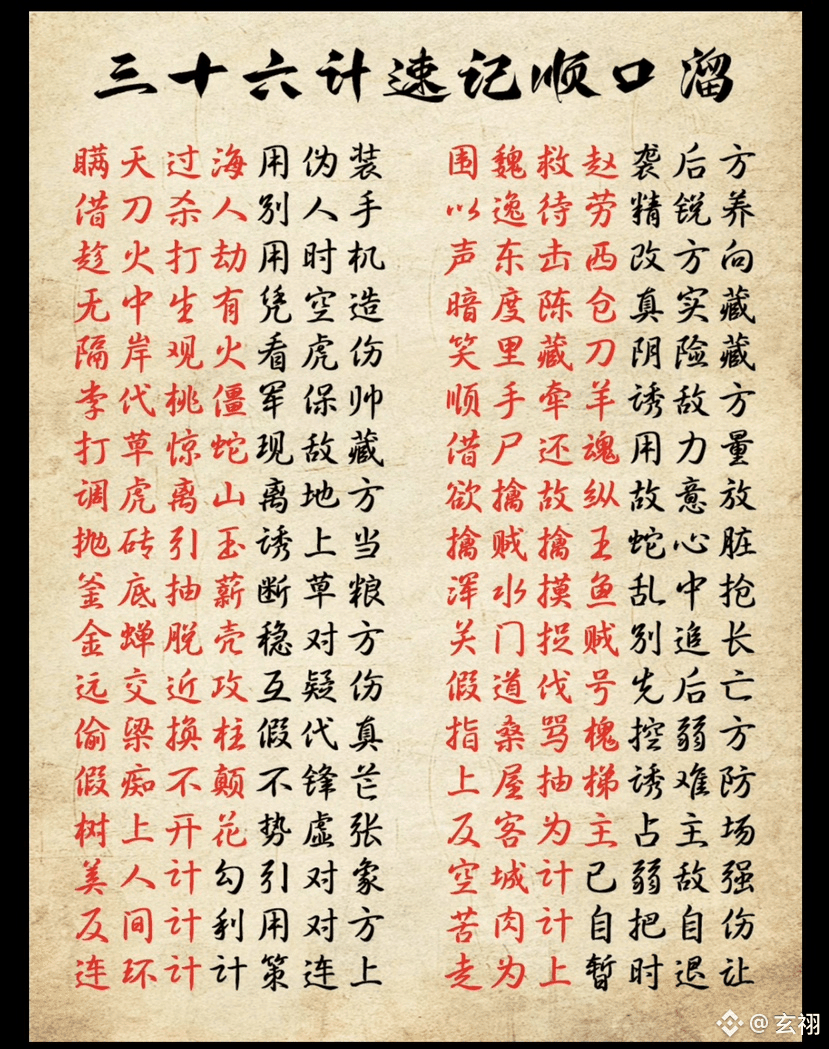 三十六计速记顺口溜
瞒天过海用伪装
围魏救赵袭后方
借刀杀人别人手
以逸待劳精锐养
趁火打劫用时机
声东击西改方向
无中生有凭空造
暗度陈仓真实藏
隔岸观火看虎伤
笑里藏刀阴险藏
李代桃僵军保帅
顺手牵羊诱敌方
打草惊蛇现敌藏
借尸还魂用力量
调虎离山离地方
欲擒故纵故意放
抛砖引玉诱上当
擒贼擒王蛇心脏
釜底抽薪断草粮
浑水摸鱼乱中抢
金蝉脱壳稳对方
关门捉贼别追长
远交近攻互疑伤
假道伐号先后亡
偷梁换柱假代真
指桑骂槐控弱方
假痴不颠不锋芒
上屋抽梯诱难防
树上开花势虚张
反客为主占主场
美人计勾引对象
空城计已弱敌强
反间计利用对方
苦肉计自把自伤
连环计计策连上
走为上暂时退让
@玄祤